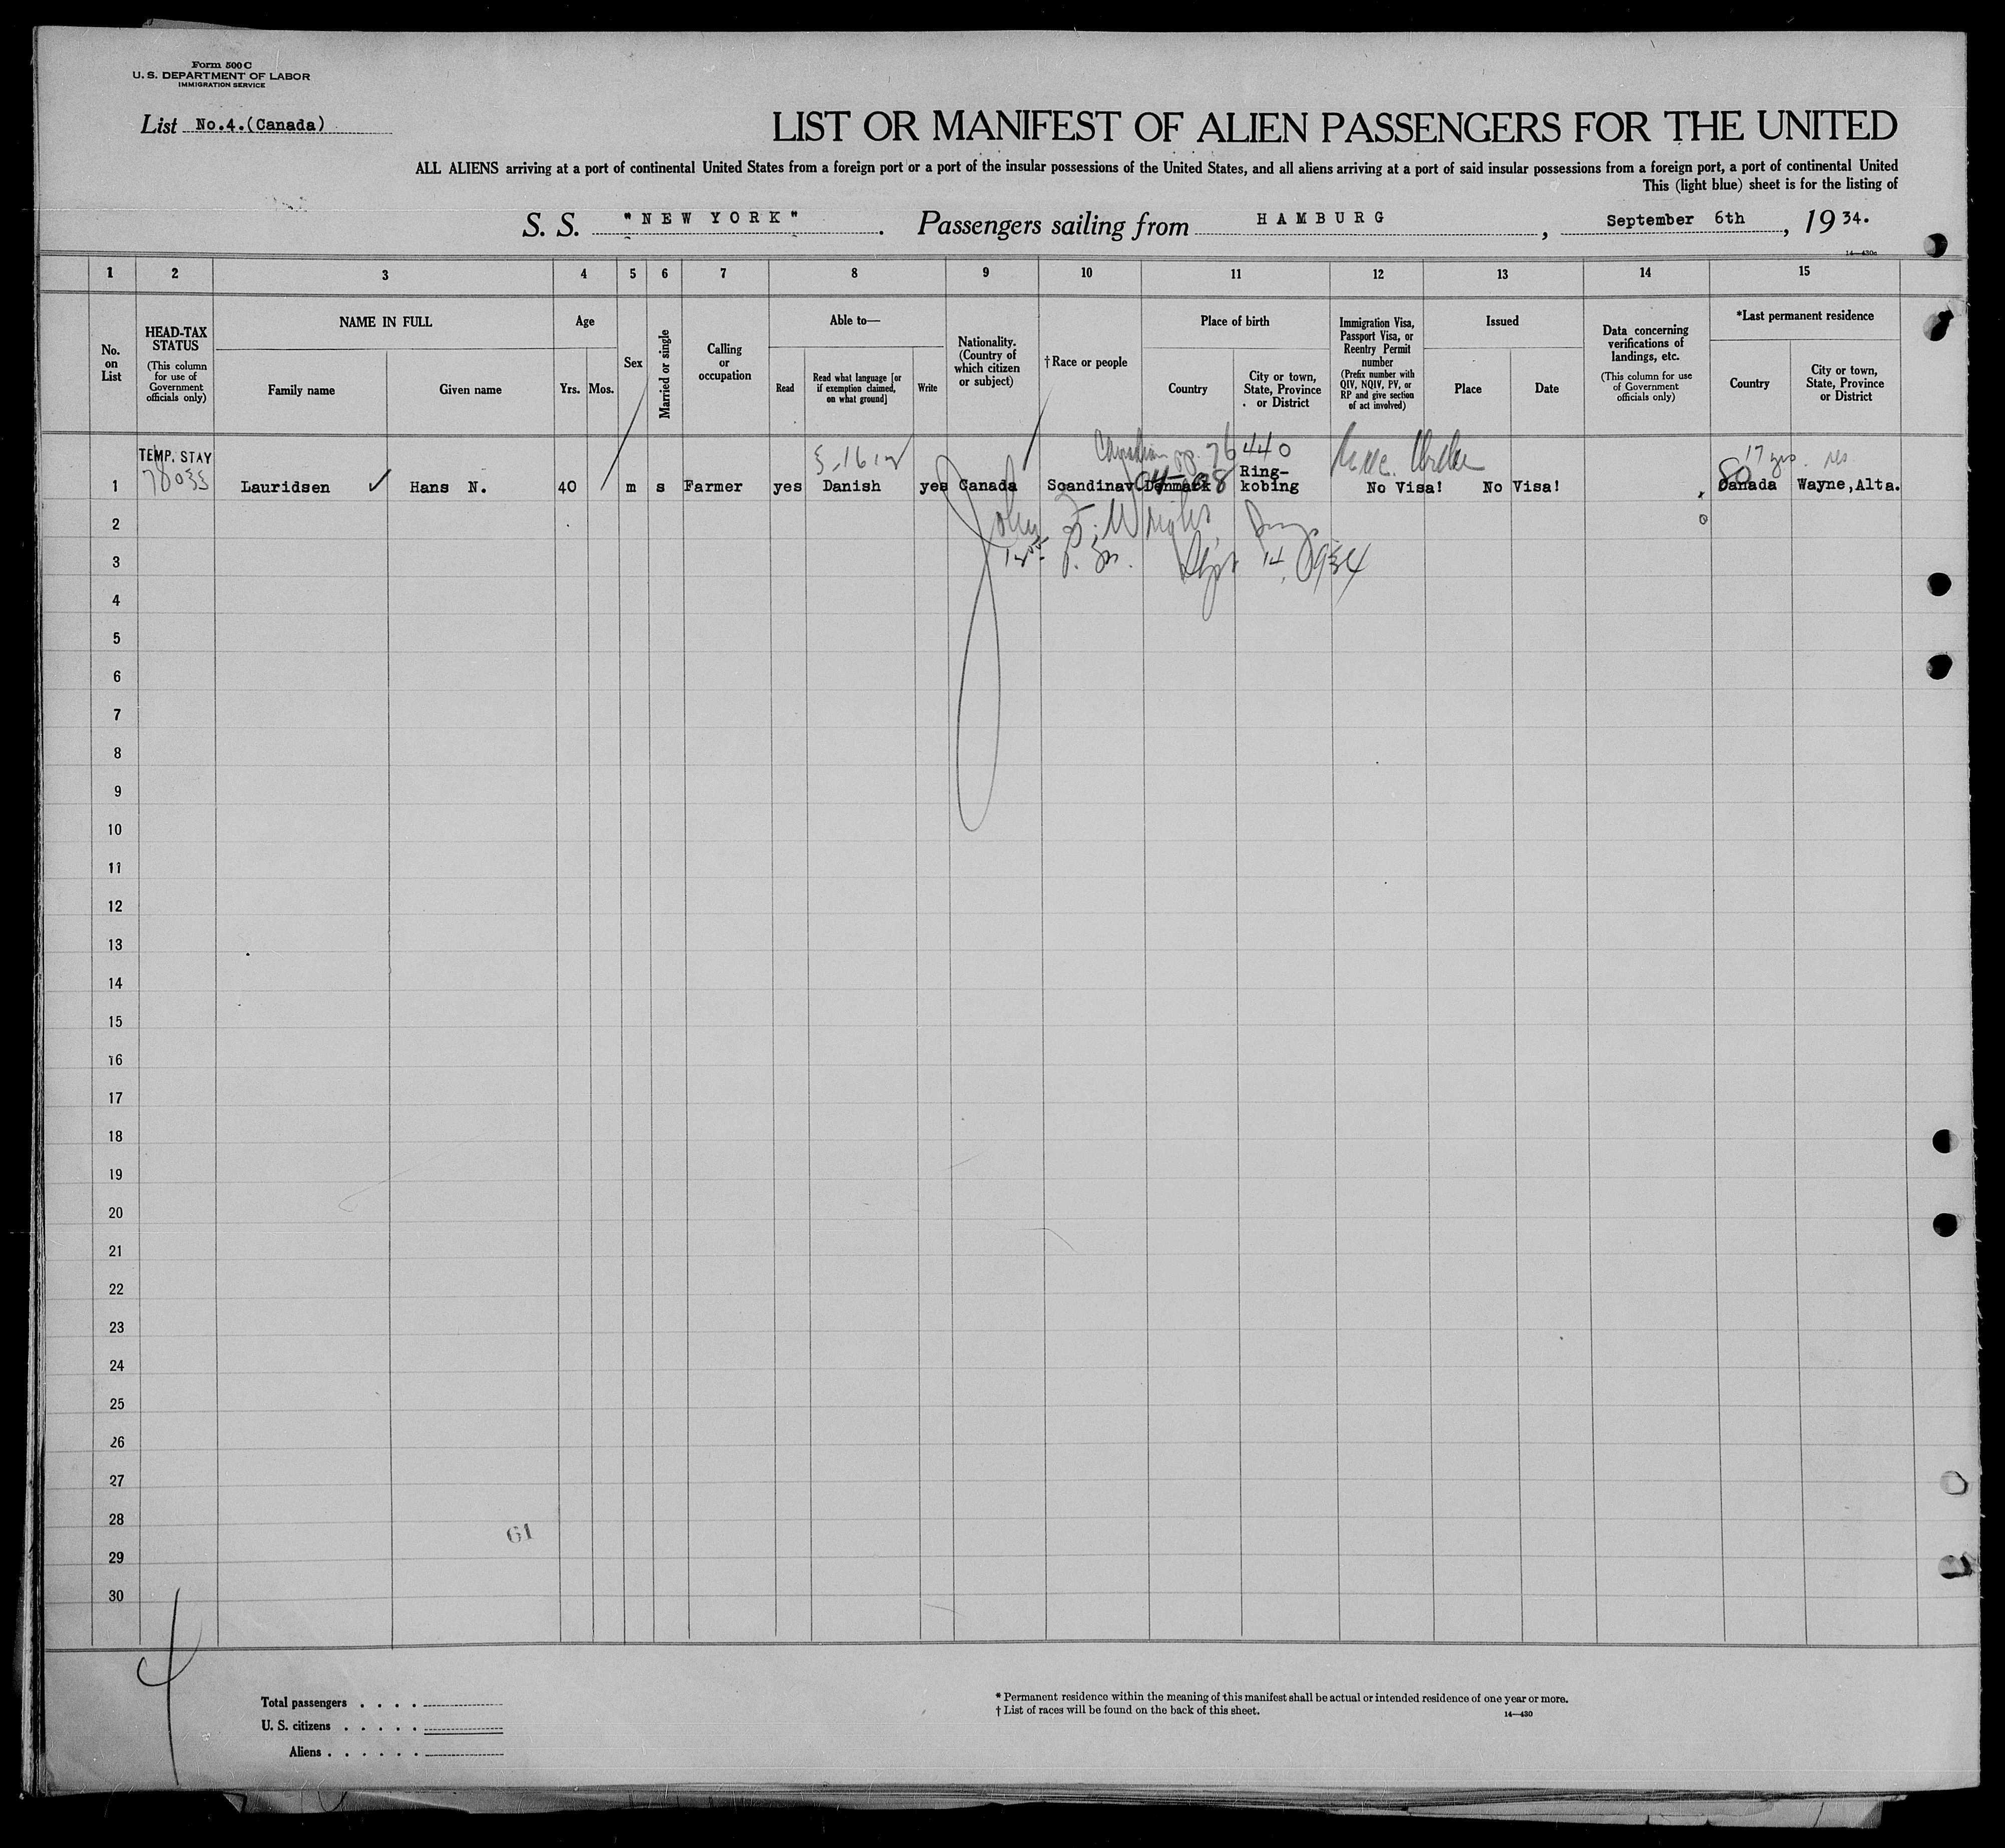 Form 500 C
U. S. DEPARTMENT OF LABOR
IMMIGRATION SERVICE
List No.4.(Canada)
LIST OR MANIFEST OF ALIEN PASSENGERS FOR THE UNITED
ALL ALIENS arriving at a port of continental United States from a foreign port or a port of the insular possessions of the United States, and all aliens arriving at a port of said insular possessions from a foreign port, a port of continental United
This (light blue) sheet is for the listing of
S. S. "NEW YORK". Passengers sailing from HAMBURG, September 6th, 19 34.
14—430c
1 2 3 4 5 6 7 8 9 10 11 12 13 14 15
No. on List
HEAD-TAX STATUS
(This column for use of Government officials only)
NAME IN FULL
Family name
Given name
Age
Yrs.
Mos.
Sex
Married or single
Calling or occupation
Able to—
Read
Read what language [or if exemption claimed, on what ground]
Write
Nationality. (Country of which citizen or subject)
† Race or people
Place of birth
Country
City or town, State, Province or District
Immigration Visa, Passport Visa, or Reentry Permit number
(Prefix number with QIV, NQIV, PV, or RP and give section of act involved)
Issued
Place
Date
Data concerning verifications of landings, etc.
(This column for use of Government officials only)
*Last permanent residence
Country
City or town, State, Province or District
TEMP. STAY 76 440 17 yrs. res
78035
1 Lauridsen ✓ Hans N. 40 m s Farmer yes Danish yes Canada Scandinav Denmark Ring-kobing No Visa! No Visa! Canada Wayne,Alta.
80
2
John
3
P. M. Sept 14, 1934
4
5
6
7
8
9
10
11
12
13
14
15
16
17
18
19
20
21
22
23
24
25
26
27
28
61
29
30
Total passengers . . . .
U. S. citizens . . . . .
Aliens . . . . . .
* Permanent residence within the meaning of this manifest shall be actual or intended residence of one year or more.
† List of races will be found on the back of this sheet.
14—430